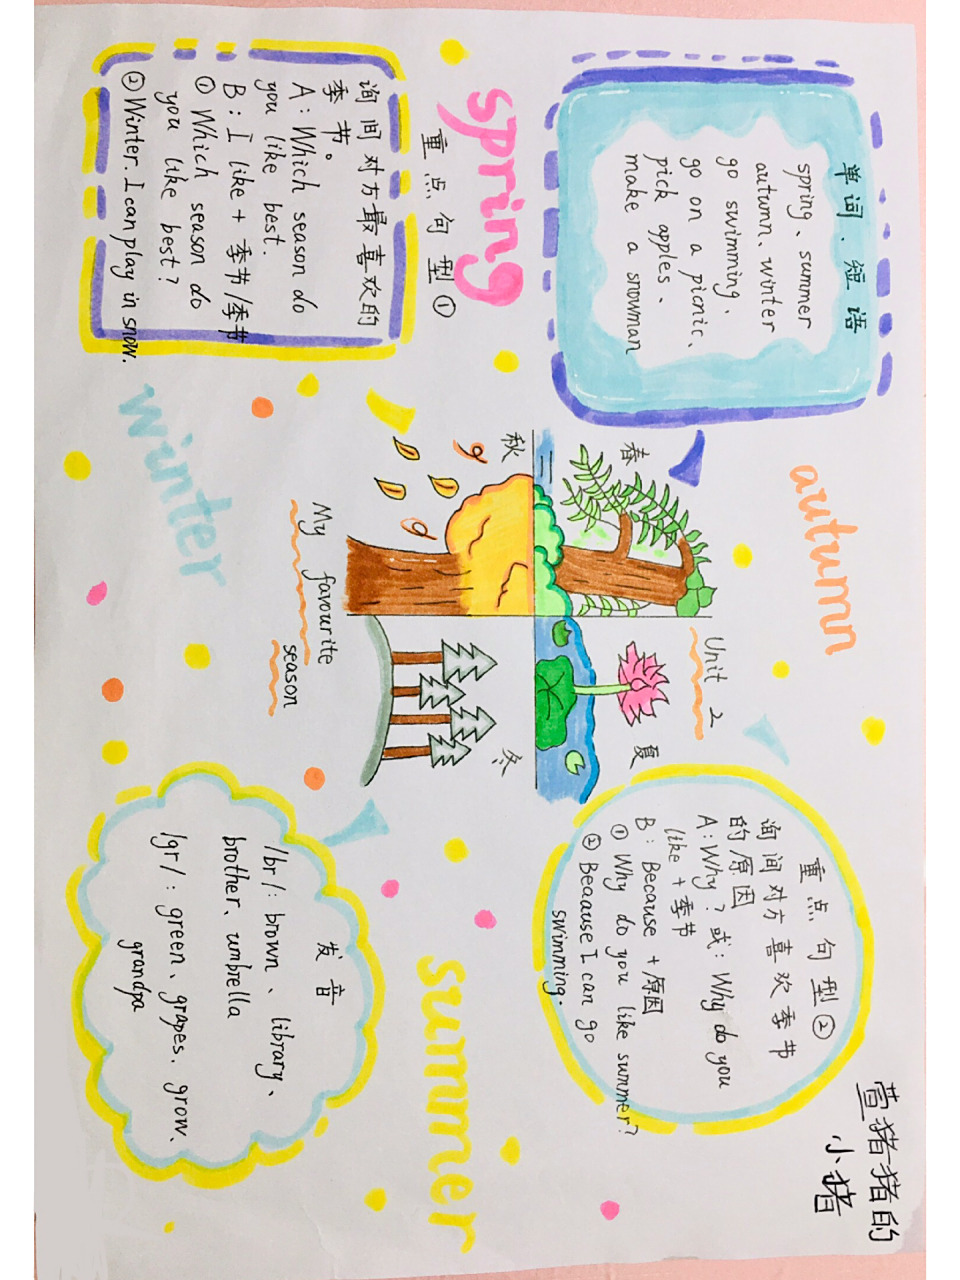 单词、短语
spring、summer
autumn、winter
go swimming、
go on a picnic、
pick apples、
make a snowman
autumn
Unit 2
春
夏
秋
冬
My favourite
season
重点句型②
询间对方喜欢季节
的原因
A:Why?或:Why do you
like+季节
B: Because+原因
① Why do you like summer?
② Because I can go
swimming.
萱猪猪的
小猪
spring
重点句型①
询间对方最喜欢的
季节。
A: Which season do
you like best.
B: I like+季节/季节
① Which season do
you like best?
② Winter. I can play in snow.
winter
summer
发音
/br/: brown、library、
brother、umbrella
/gr/: green、grapes、grow、
grandpa